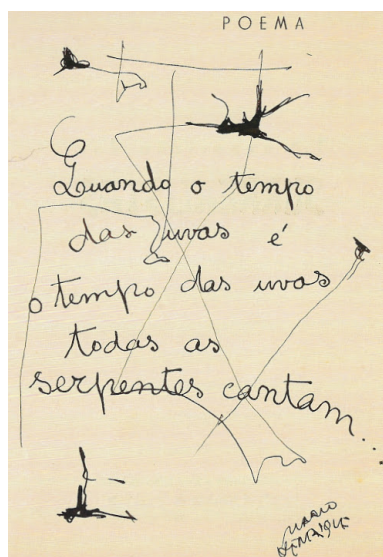 POEMA
Quando o tempo
das uvas é
o tempo das uvas
todas as
serpentes cantam...
MARIO
HENRIQUE